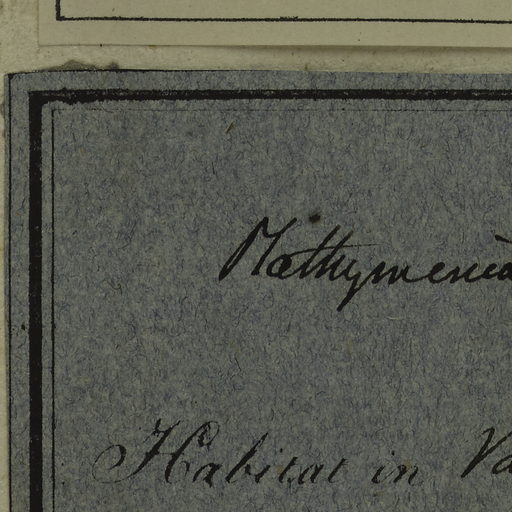 Mathymenia
Habitat in Va